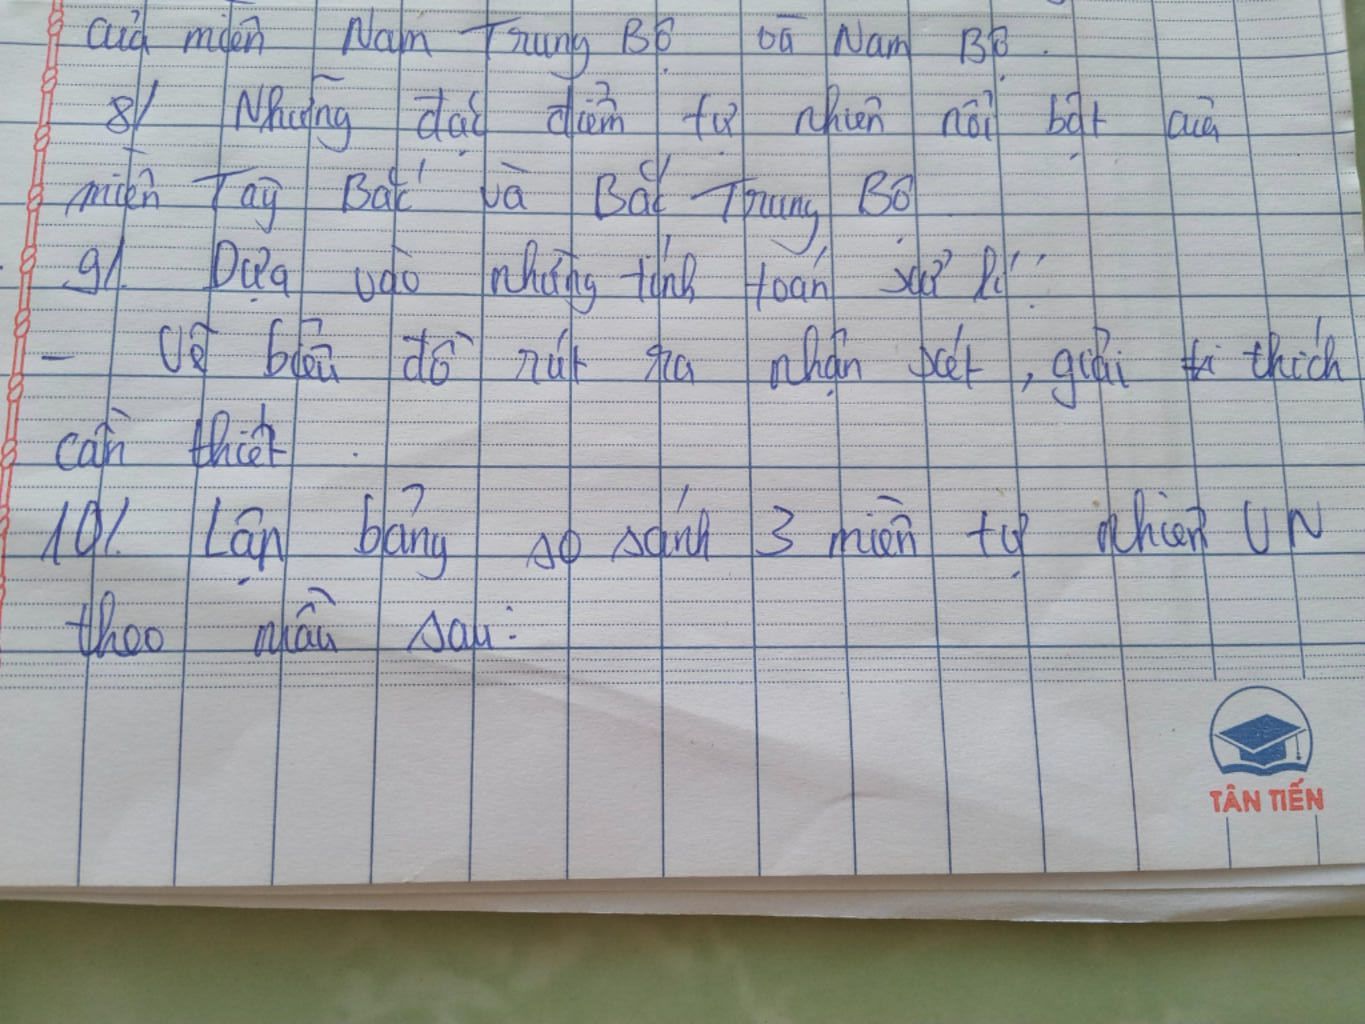 của miền Nam Trung Bộ và Nam Bộ.
8/ Những đặc điểm tự nhiên nổi bật của
miền Tây Bắc và Bắc Trung Bộ
9/. Dựa vào những tính toán xử lí
- Vẽ biểu đồ rút ra nhận xét, giải thích
cần thiết.
10/. Lập bảng so sánh 3 miền tự nhiên VN
theo mẫu sau:
TÂN TIẾN